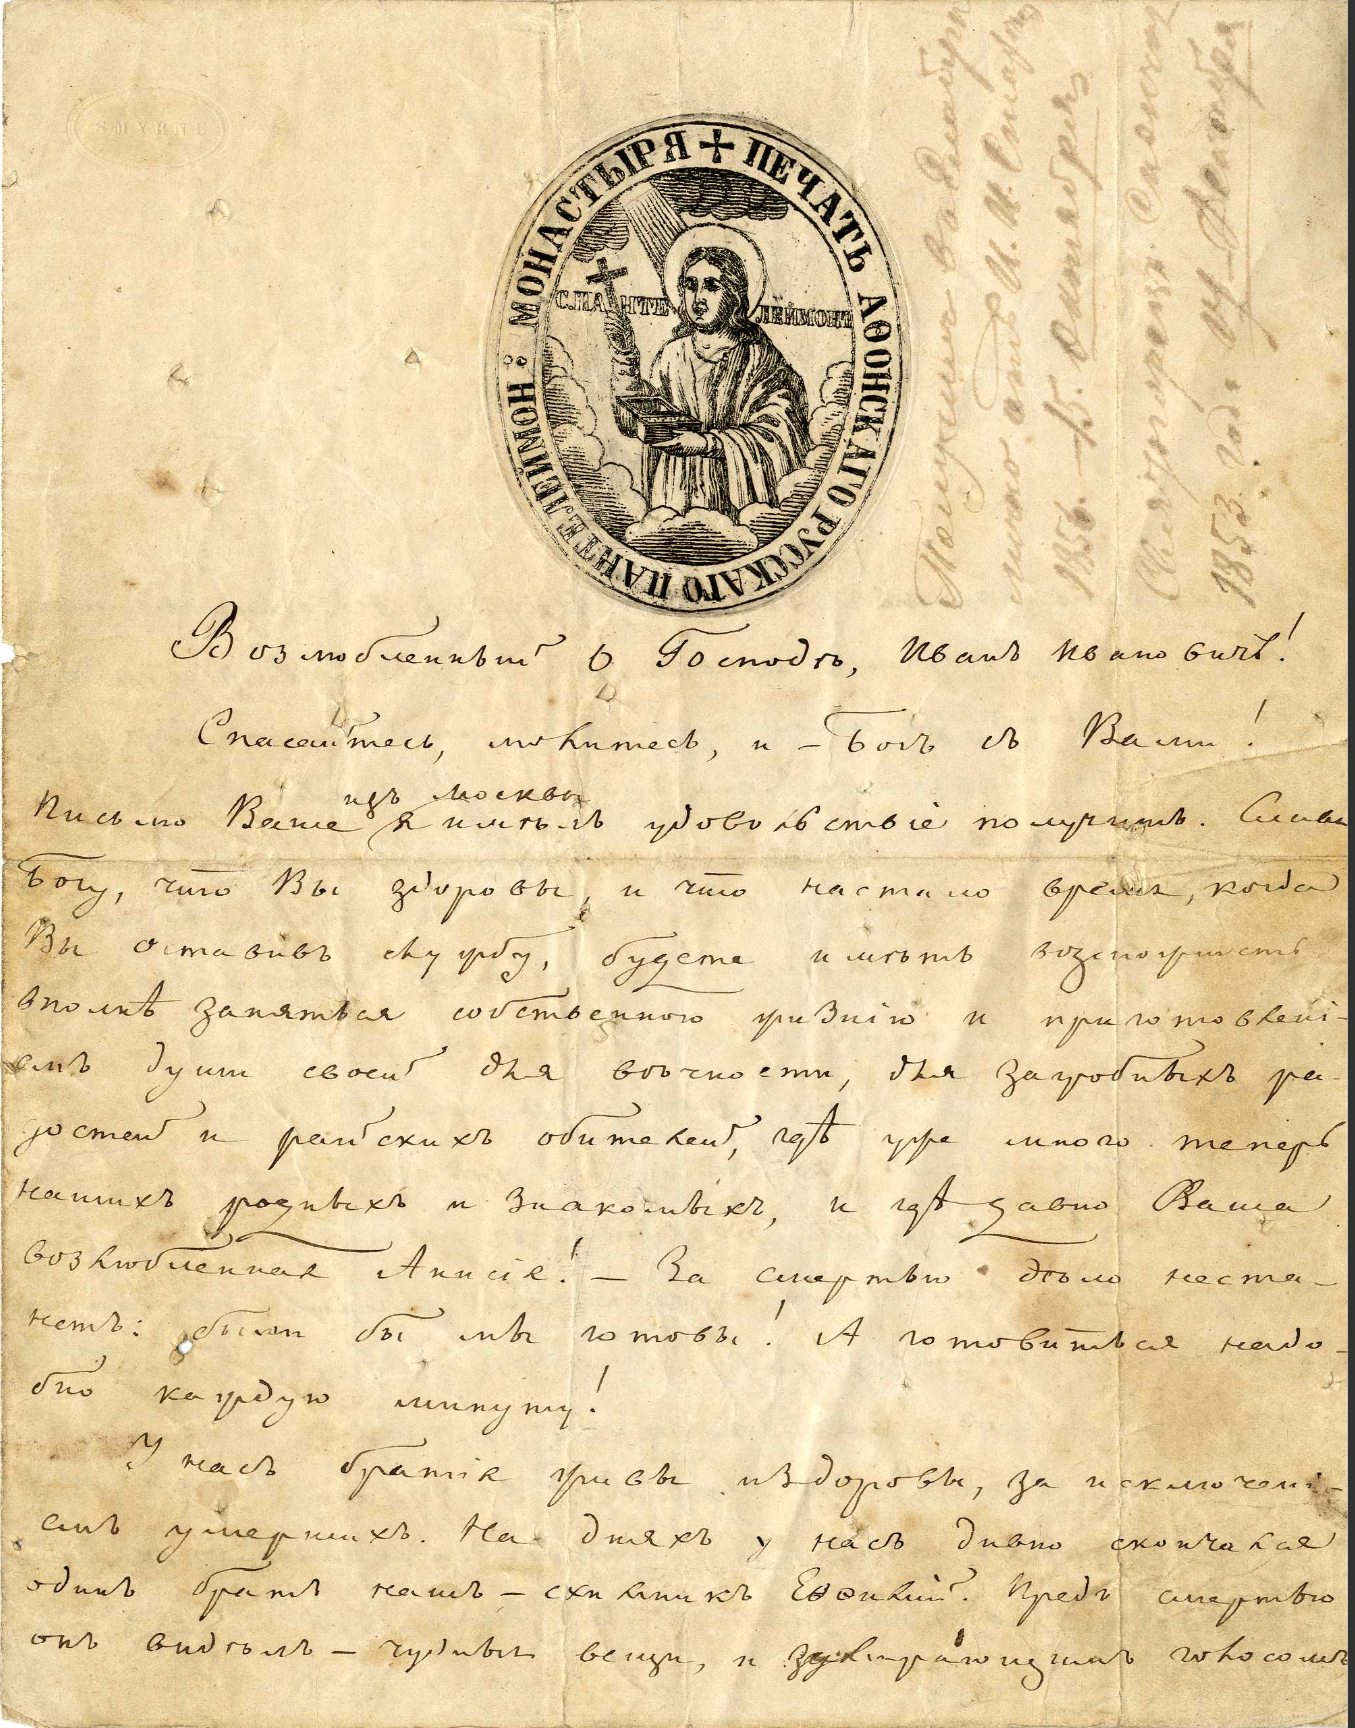 SMYRNE
ПЕЧАТЬ АѲОНСКАГО РУССКАГО ПАНТЕЛЕЙМОН: МОНАСТЫРЯ
С. ПАНТЕЛЕЙМОНЪ
1856. 15. Октября
1853 год.
Возлюбленный о Господѣ, Иванъ Ивановичъ!
Спасайтесь, молитесь, и – Богъ съ Вами!
изъ Москвы
Письмо Ваше я имѣлъ удовольствіе получить. Слава
Богу, что Вы здоровы, и что настало время, когда
Вы оставивъ службу, будете имѣть возможность
вполнѣ заняться собственною жизнію и приготовлені-
емъ души своей для вѣчности, для загробныхъ ра-
достей и райскихъ обителей, гдѣ уже много теперь
нашихъ родныхъ и знакомыхъ, и гдѣ давно Ваша
возлюбленная Анисія! – За смертью дѣло неста-
нетъ: были бы мы готовы! А готовиться надо-
бно каждую минуту!
У насъ братія живы и здоровы, за исключені-
емъ умершихъ. На дняхъ у насъ дивно скончался
одинъ братъ нашъ – схимникъ Предъ смертью
онъ видѣлъ – чудныя вещи, и голосомъ